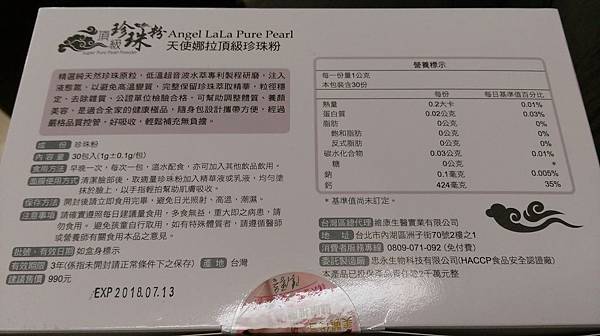 頂級
珍珠粉
Super Pure Pearl Powder
Angel LaLa Pure Pearl
天使娜拉頂級珍珠粉
精選純天然珍珠原粒，低溫超音波水萃專利製程研磨，注入
液態氮，以避免高溫變質，完整保留珍珠萃取精華，粒徑穩
定、去除雜質，公證單位檢驗合格，可幫助調整體質、養顏
美容，是適合全家的健康極品，隨身包設計攜帶方便，經過
嚴格品質控管，好吸收，輕鬆補充無負擔。
成　份 珍珠粉
內 容 量 30包入(1g±0.1g/包)
食用方法 早晚一次，每次一包，溫水配食，亦可加入其他飲品飲用。
面膜使用方式 清潔臉部後，取適量珍珠粉加入精華液或乳液，均勻塗
抹於臉上，以手指輕拍幫助肌膚吸收。
保存方法 開封後請立即食用完畢，避免日光照射、高溫，潮濕。
注意事項 請確實遵照每日建議量食用，多食無益，重大即之病患，請
勿食用。避免孩童自行取用，如有特殊體質者，請遵循醫師
或營養師有關食用本品之意見。
批號、有效日期 如盒身標示
有效期限 3年(係指未開封請正常條件下之保存) 產 地 台灣
建議售價 990元
EXP 2018.07.13
營養標示
每一份量1公克
本包裝含30份
每份 每日基準值百分比
熱量 0.2大卡 0.01%
蛋白質 0.02公克 0.03%
脂肪 0公克 0%
飽和脂肪 0公克 0%
反式脂肪 0公克 0%
碳水化合物 0.03公克 0.01%
糖 0公克 *
鈉 0.1毫克 0.005%
鈣 424毫克 35%
* 基準值尚未訂定。
台灣區總代理 維康生醫實業有限公司
地　址 台北市內湖區洲子街70號2樓之1
消費者服務專線 0809-071-092 (免付費)
委託製造廠 忠永生物科技有限公司(HACCP食品安全認證廠)
本產品已投保產品責任險2千萬元整